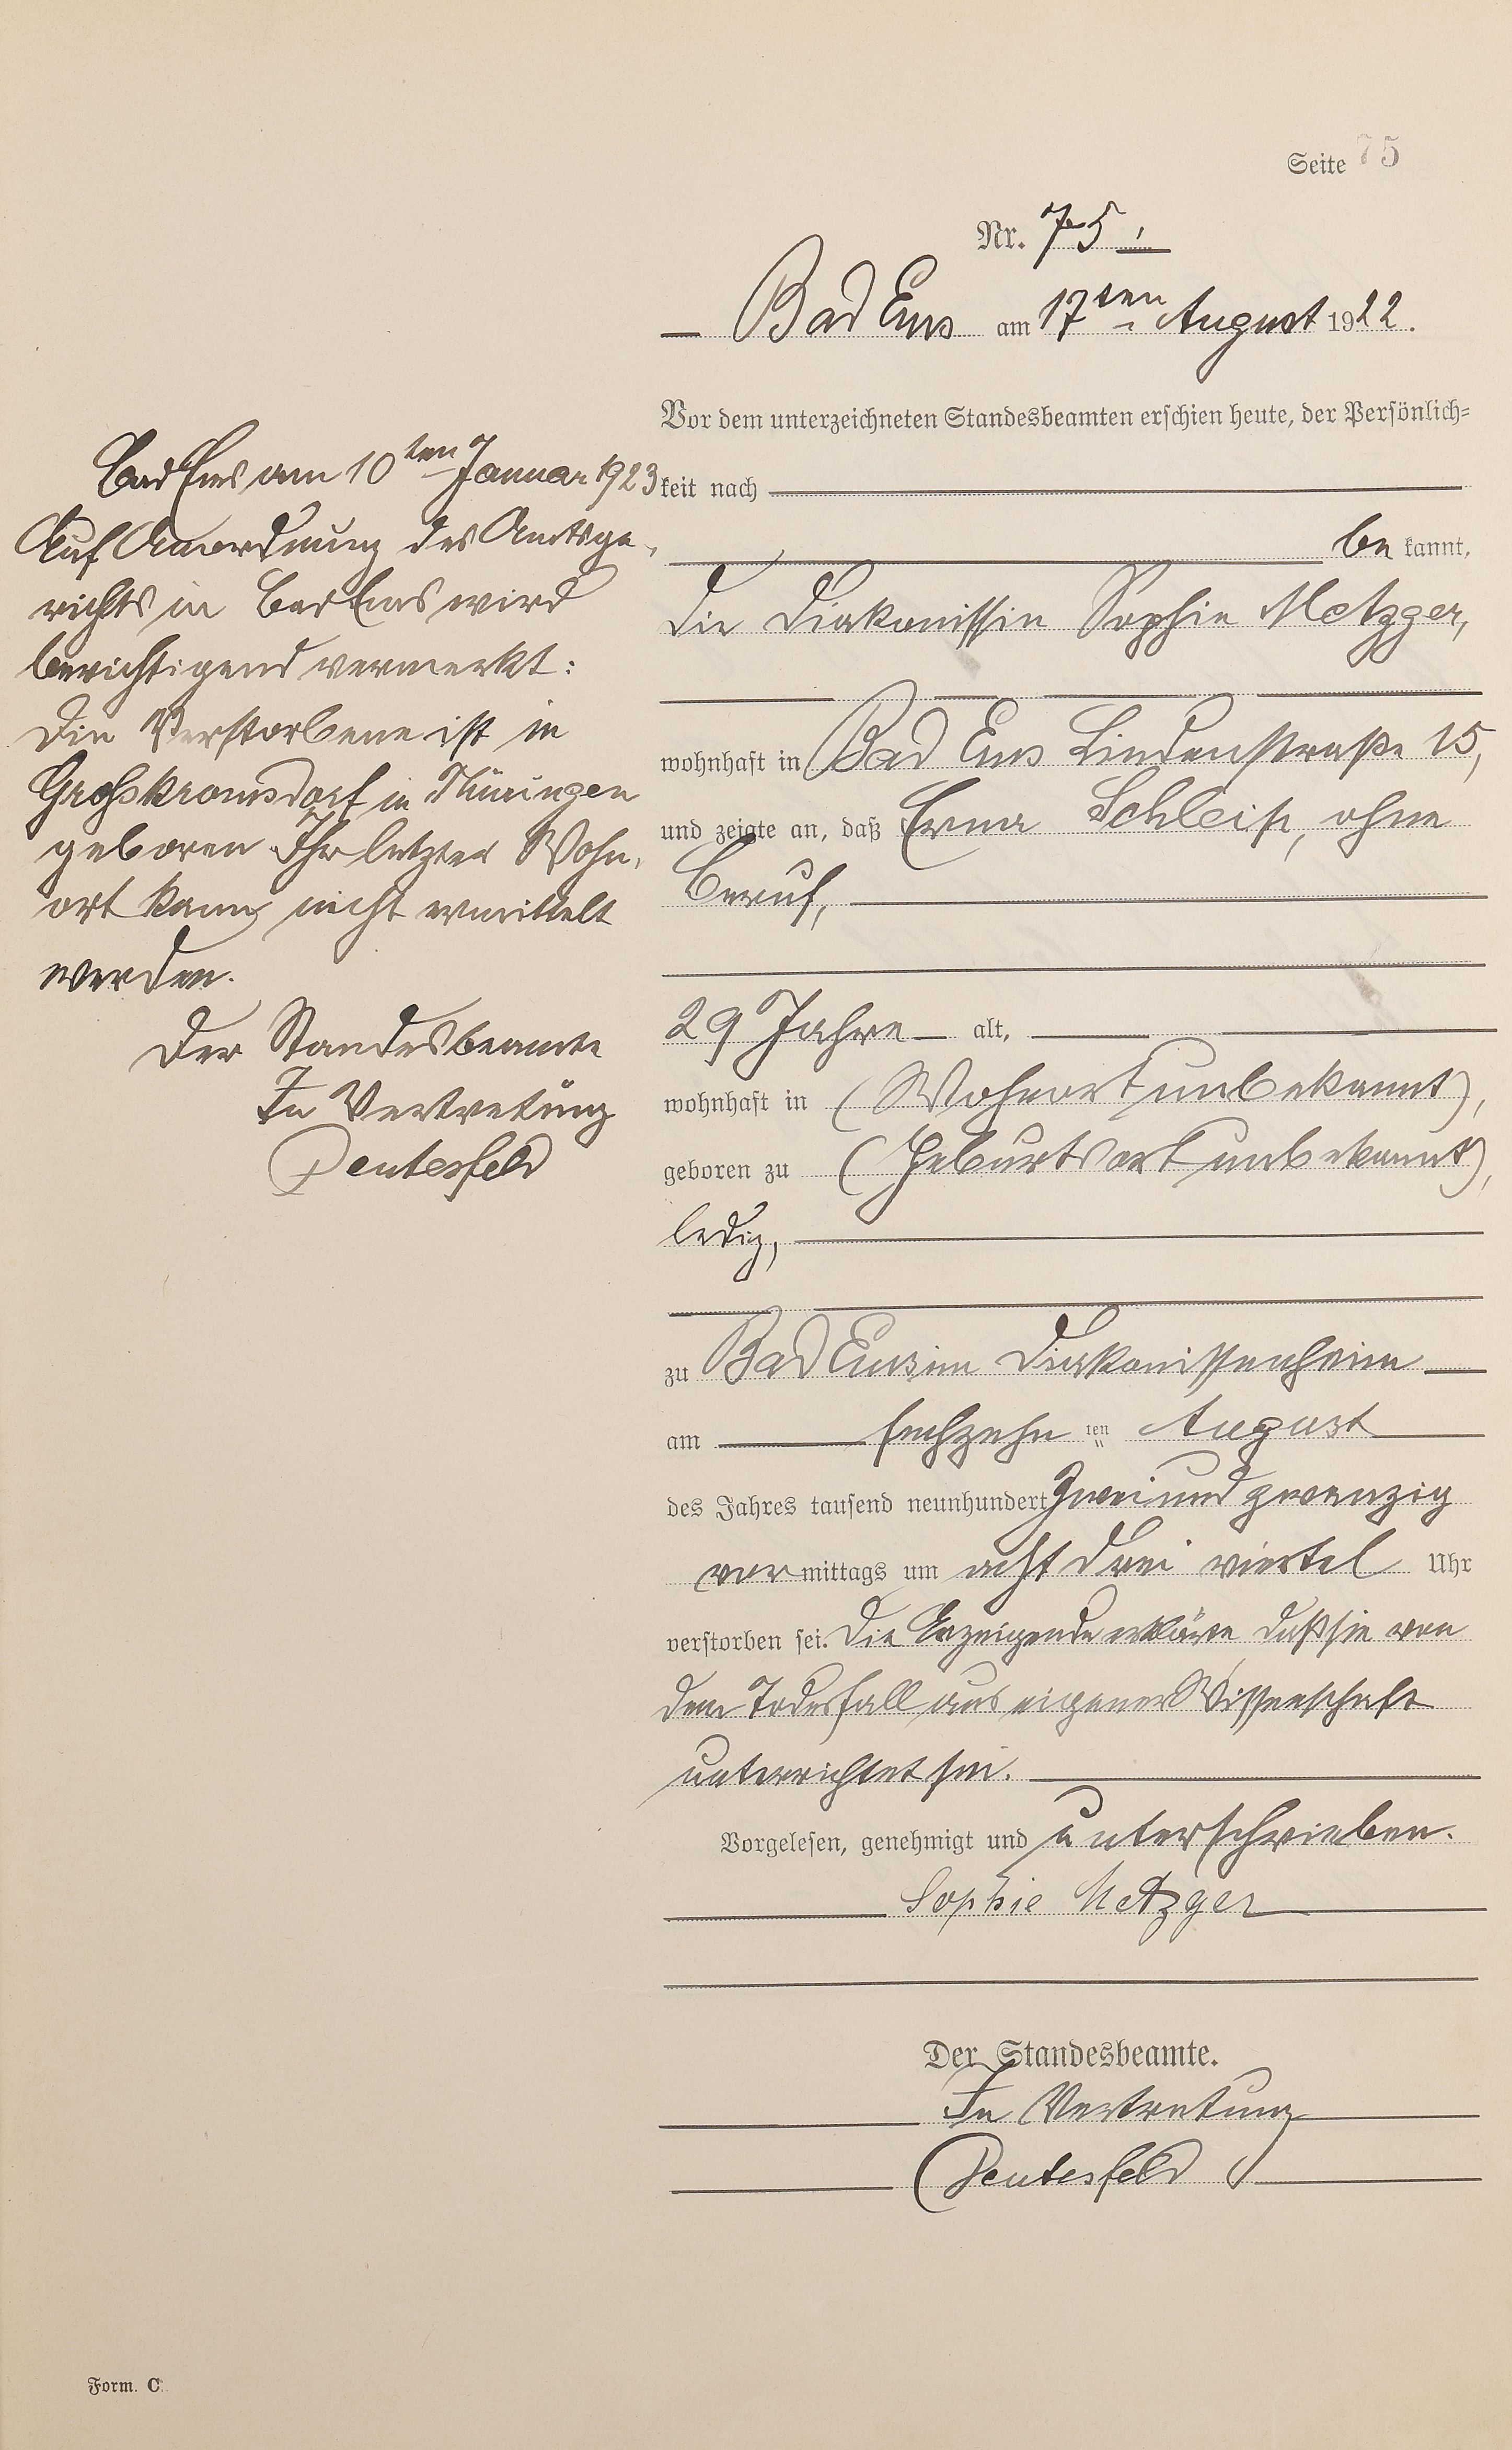 Seite 75
Nr. 75.
Bad Ems am 17ten August 1922.
Vor dem unterzeichneten Standesbeamten erschien heute, der Persönlich-
keit nach
be kannt,
die Diakonissin Sophie Metzger,
wohnhaft in Bad Ems Lindenstraße 15,
und zeigte an, daß Erna Schleip, ohne
Beruf,
29 Jahre alt,
wohnhaft in (Wohnort unbekannt),
geboren zu (Geburtsort unbekannt),
ledig,
zu Bad Ems im Diakonissenheim
am sechzehn ten August
des Jahres tausend neunhundert zwei und zwanzig
vor mittags um acht drei viertel Uhr
verstorben sei. Die Anzeigende erklärte, daß sie von
dem Todesfall aus eigener Wissenschaft
unterrichtet sei.
Vorgelesen, genehmigt und unterschrieben.
Sophie Metzger
Der Standesbeamte.
In Vertretung
Deutesfeld
Bad Ems am 10ten Januar 1923
Auf Anordnung des Amtsge-
richts in Bad Ems wird
berichtigend vermerkt:
Die Verstorbene ist in
Grosskromsdorf in Thüringen
geboren. Ihr letzter Wohn-
ort kann nicht ermittelt
werden.
Der Standesbeamte
In Vertretung
Deutesfeld
Form. C.